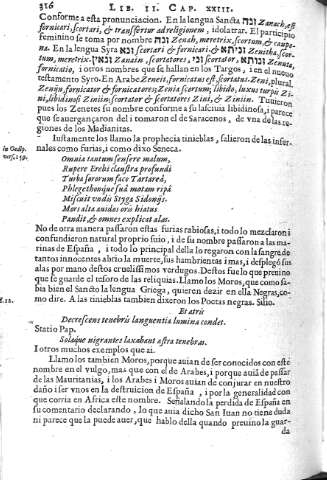 316 LIB. II. CAP. XXIII.
Conforme a esta pronunciacion. En la lengua Sancta זנה Zanach, est
fornicari, scortari, & transfertur ad religionem, idolatrar. El participio
feminino se toma por nombre זונה Zonah, meretrix, scortum, & caupo-
na. En la lengua Syra זנא scortari & fornicari, &
tum, meretrix. Zanain, scortatores, scortator, Zenuta,
fornicatio, i otros nombres que se hallan en los Targos, i en el nuevo
testamento Syro. En Arabe Zeneit, fornicatus est, scortatus: Zeni,
Zenijn, fornicator & fornicatores; Zenia scortum; libido, luxus turpis Zi-
ni, libidinosus Zinim; scortator & scortatores Zini, & Zenim. Tuvieron
pues los Zenetes su nombre conforme a su lasciva libidinosa, i parece
que se avergançaron del i tomaron el de Saracenos, de una de las re-
giones de los Madianitas.
Iustamente los llamo la prophecia tinieblas, salieron de las infer-
nales como furias, i como dixo Seneca.
Omnia tantum sensere malum,
Rupere Erebi claustra profundi
Turba sororum face Tartarea,
Phlegethonque sua motam ripa
Miscuit undis Styga Sidonijs.
Mors alta avidos oris hiatus
Pandit, & omnes explicat alas.
No de otra manera passaron estas furias rabiosas, i todo lo mezclaron i
confundieron natural proprio suio, i de su nombre passaron a las ma-
rinas de España, i todo lo principal della lo regaron con la sangre de
tantos innocentes abrio la muerte, sus hambrientas i mas, i desplegò sus
alas por mano destos cruelissimos verdugos. Destos fue lo que previno
que se guarde el tesoro de las reliquias. Llamo los Moros, que como sa-
ba bien el Sancto la lengua Griega, quieren dezir en ella Negras, co-
mo dire. A las tinieblas tambien dixeron los Poetas negras. Silio.
Et atris
Decrescens tenebris languentia lumina condet.
Statio Pap.
Solaque nigrantes laxabant astra tenebras.
I otros muchos exemplos que ai.
Llamo los tambien Moros, porque avian de ser conocidos con este
nombre en el vulgo, mas que con el de Arabes, i porque avia de passar
de las Mauritanias, i los Arabes i Moros avian de conjurar en nuestro
daño i ser unos en la destruicion de España, i por la generalidad con
que corria en Africa este nombre. Señalando la perdida de España en
su comentario declarando, lo que avia dicho San Iuan no tiene duda
ni parece que la puede aver, que hablo della quando previno la guar-
da